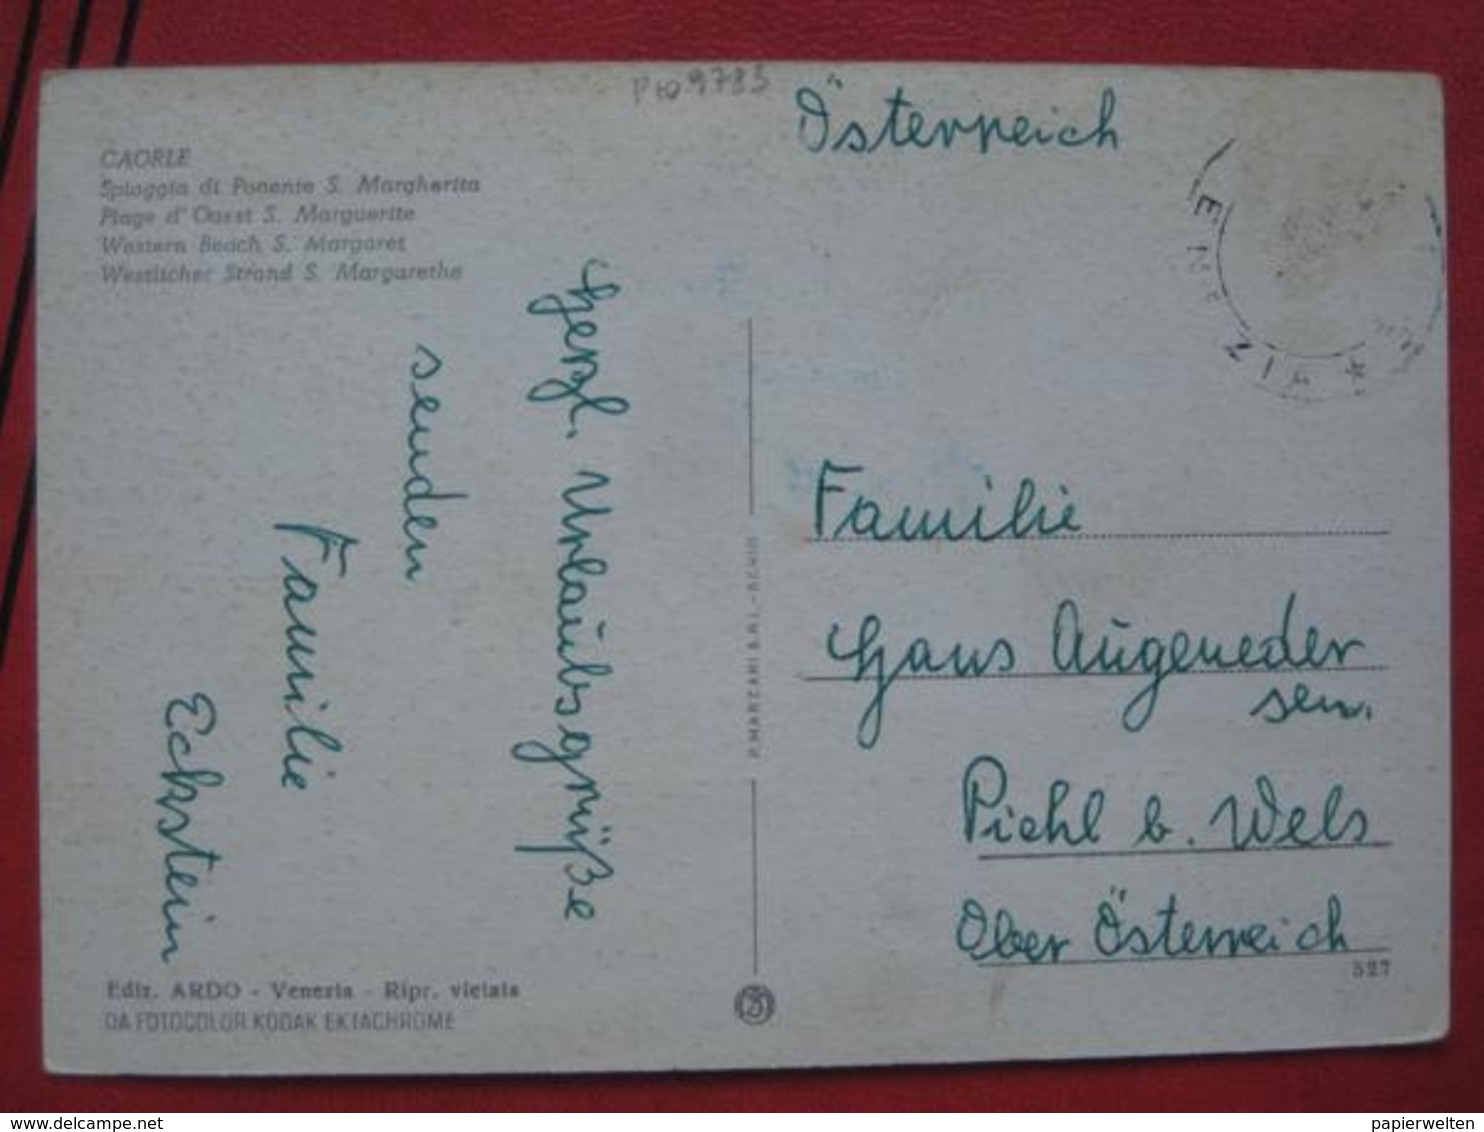 CAORLE
Spiaggia di Ponente S. Margherita
Plage d'Ouest S. Marguerite
Western Beach S. Margaret
Westlicher Strand S. Margarethe
Herzl. Urlaubsgrüße
senden
Familie
Eckstein
Ediz. ARDO - Venezia - Ripr. vietata
DA FOTOCOLOR KODAK EKTACHROME
9783
Österreich
Familie
Hans Augeneder
sen.
Pichl b. Wels
Ober Österreich
527
delcampe.net
papierwelten